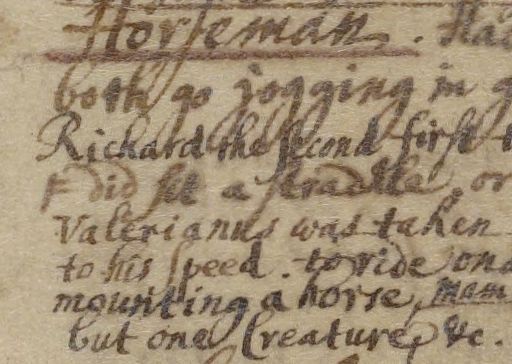 Horseman. Hac
both go jogging in g
Richard the second first t
did set a straddle, or
Valerianus was taken
to his speed. to ride one
mounting a horse, mam
but one Creature, &c.